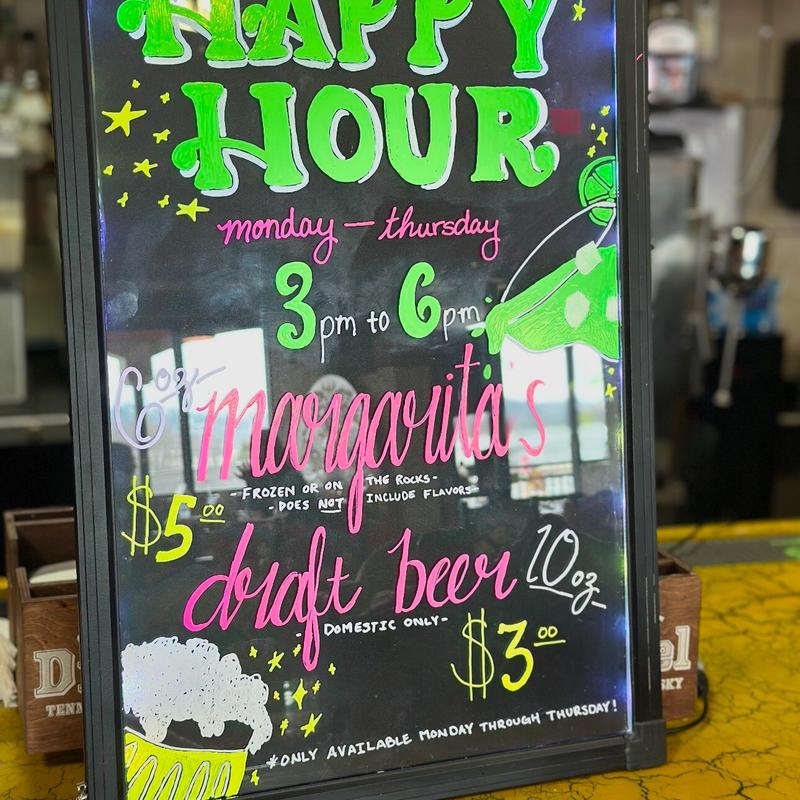 HAPPY
HOUR
monday — thursday
3pm to 6pm
6oz margaritas
- FROZEN OR ON THE ROCKS -
- DOES NOT INCLUDE FLAVORS -
$5.00
draft beer 10oz
- DOMESTIC ONLY -
$3.00
*ONLY AVAILABLE MONDAY THROUGH THURSDAY!